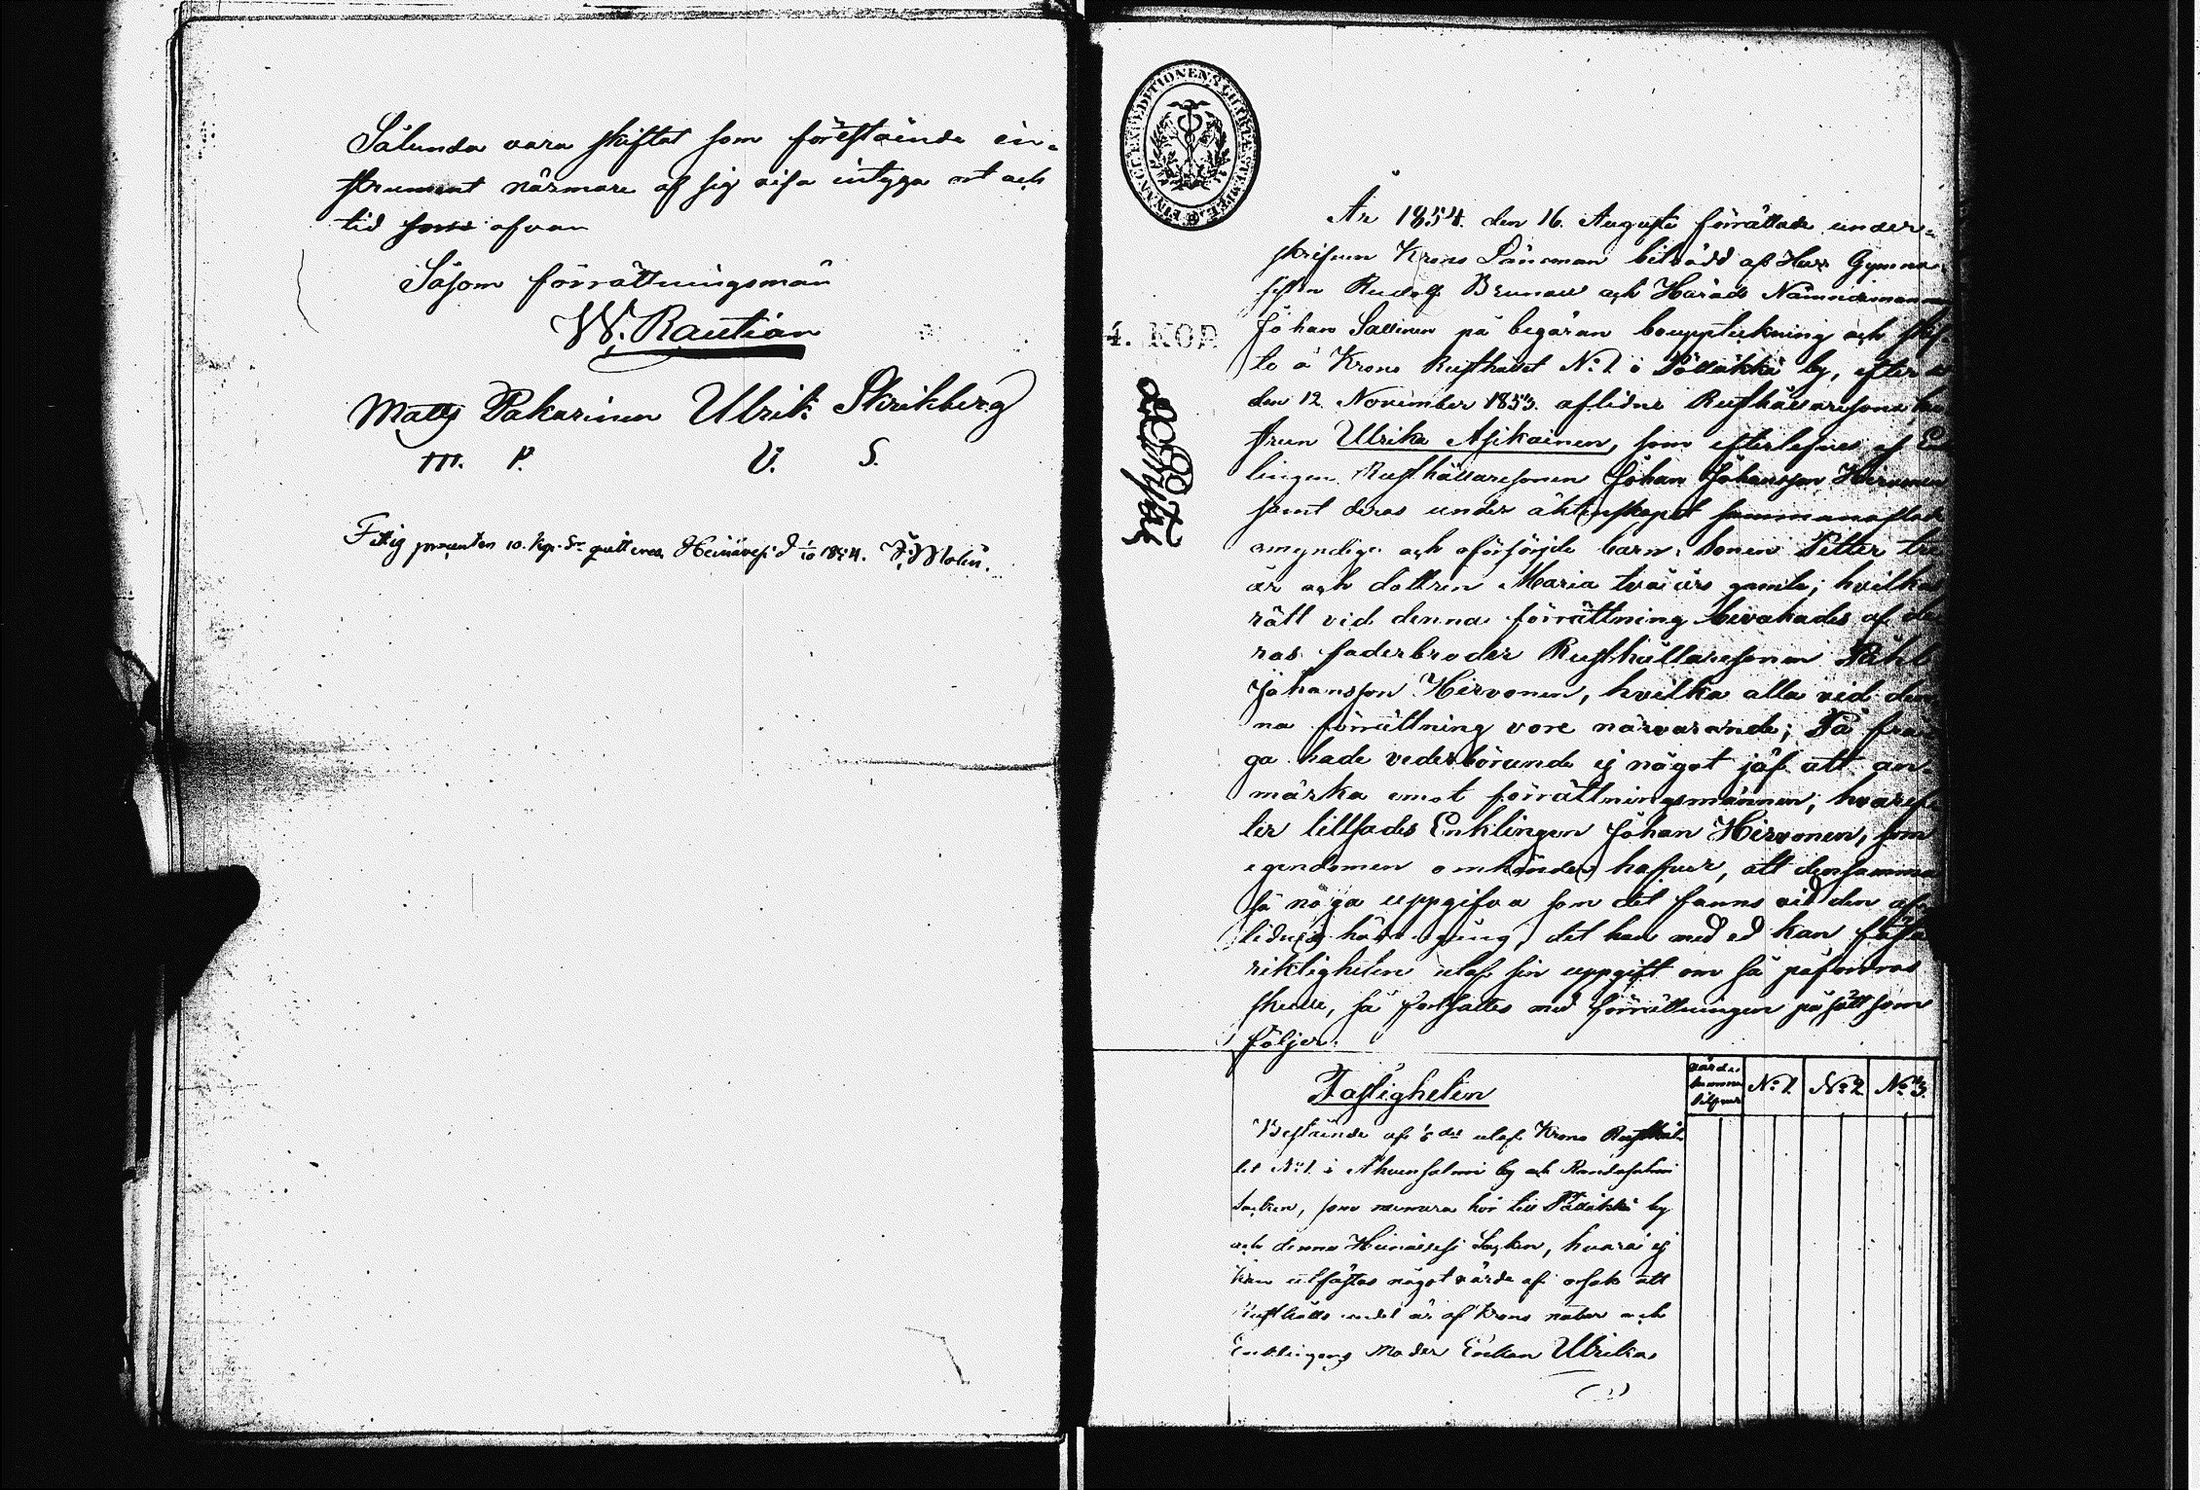 Sålunda vara skiftat som förestående in-
strument närmare af sig visa intyga ort och
tid som ofvan
Såsom förrättningsmän
W. Rautian
Matts Pakarinen Ulrik Skrikberg
m. P. U. S.
Fattig procenten 10. kop. Sr qvitteras, Heinävesi d 1/10 1854.
FINANCE EXPEDITIONENS CHARTÆ STEMPEL
4. KOP
År 1854. den 16. Augusti förrättade under-
skrifven Krono Länsman biträdd af Herr Gymna-
sisten Rudolf Brunou och Härads Nämndemannen
Johan Sallinen på begäran bouppteckning och skif-
te å Krono Rusthållet No 1. i Pölläkkä by, efter
den 12. November 1853. aflidne Rusthållaresons hu-
strun Ulrika Asikainen, som efterlefves af Enk-
lingen Rusthållaresonen Johan Johansson Hirvonen
samt deras under äktenskapet sammanaflade
omyndige och oförsörjde barn: Sonen Petter tre
år och dottren Maria två års gamla; hvilkas
rätt vid denna förrättning bevakades af de-
ras faderbroder Rusthållaresonen Påhl
Johansson Hirvonen, hvilka alla vid den-
na förrättning vore närvarande; På frå-
ga hade vederbörande ej något jäf att an-
märka emot förrättningsmännen; hvaref-
ter tillsades Enklingen Johan Hirvonen, som
egendomen omhänder hafver, att densamma
så noga uppgifva som det fanns vid den af-
lidnes hädangång, det han med ed kan fästa
riktigheten utaf sin uppgift om så påfordras
skulle, så fortsattes med förrättningen på sätt som
följer:
Fastigheten
No 1. No 2. No 3.
Bestående af 1/6 del utaf Krono Rusthål-
let No 1. i Ahvensalmi by och Randasalmi
Socken, som numera hör till Pölläkkä by
och denna Heinävesi Socken, hvarå ej
kan utsättas något värde af orsak att
Rusthålls andel är af Krono natur och
Enklingens Moder Enkan Ulrika